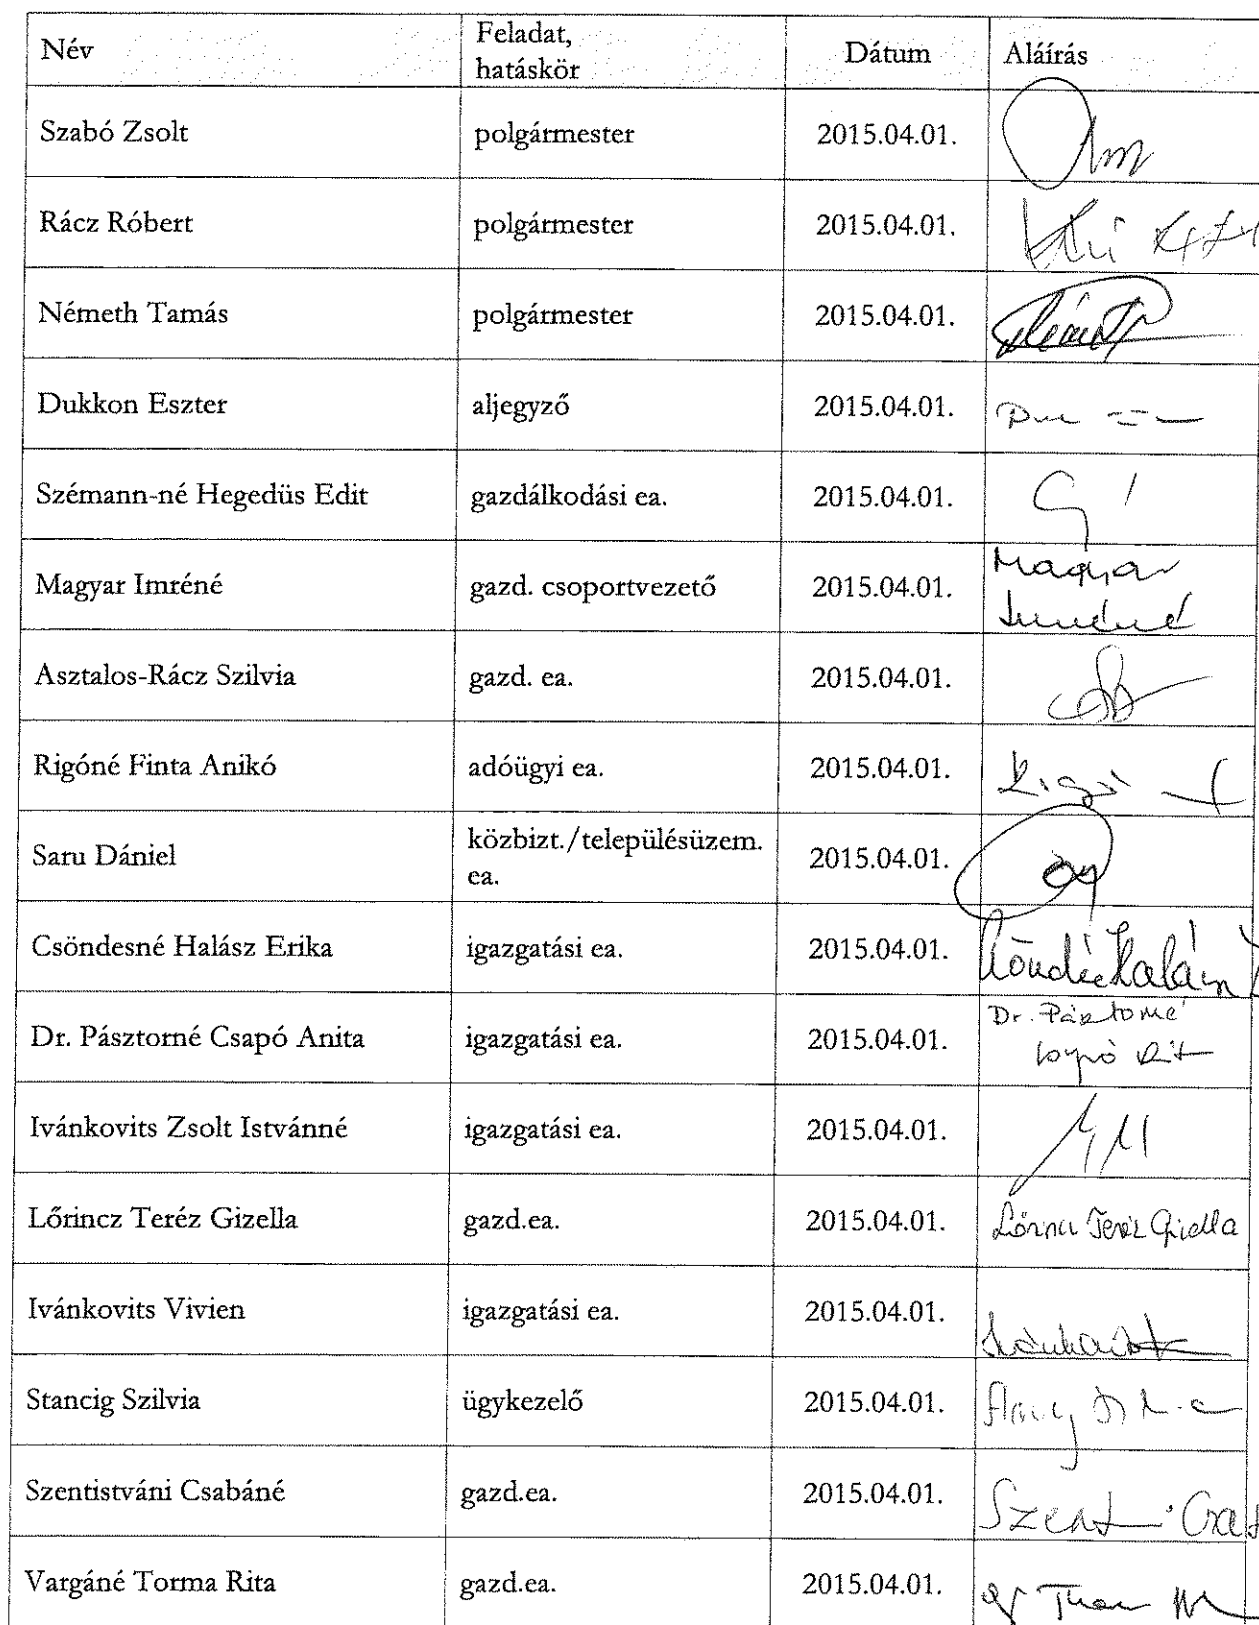 Név Feladat, hatáskör Dátum Aláírás
Szabó Zsolt polgármester 2015.04.01.
Rácz Róbert polgármester 2015.04.01.
Németh Tamás polgármester 2015.04.01.
Dukkon Eszter aljegyző 2015.04.01.
Szémann-né Hegedüs Edit gazdálkodási ea. 2015.04.01.
Magyar Imréné gazd. csoportvezető 2015.04.01. Magyar
Imréné
Asztalos-Rácz Szilvia gazd. ea. 2015.04.01.
Rigóné Finta Anikó adóügyi ea. 2015.04.01.
Saru Dániel közbizt./településüzem. ea. 2015.04.01.
Csöndesné Halász Erika igazgatási ea. 2015.04.01.
Dr. Pásztorné Csapó Anita igazgatási ea. 2015.04.01. Dr. Pásztorné
Ivánkovits Zsolt Istvánné igazgatási ea. 2015.04.01.
Lőrincz Teréz Gizella gazd.ea. 2015.04.01. Lőrincz Teréz Gizella
Ivánkovits Vivien igazgatási ea. 2015.04.01.
Stancig Szilvia ügykezelő 2015.04.01.
Szentistváni Csabáné gazd.ea. 2015.04.01.
Vargáné Torma Rita gazd.ea. 2015.04.01.